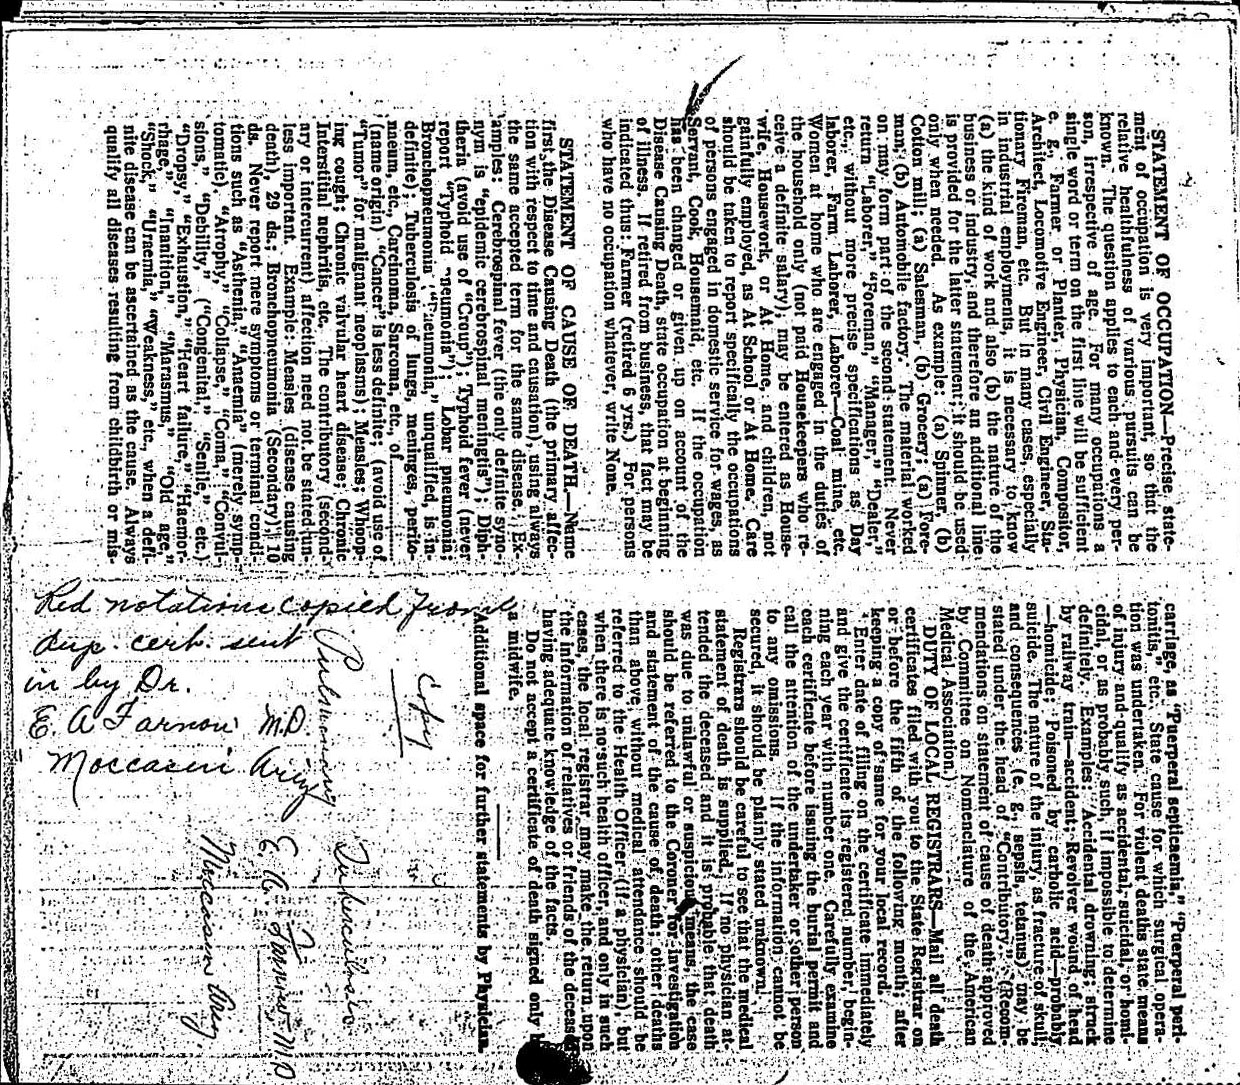 STATEMENT OF OCCUPATION—Precise state-
ment of occupation is very important, so that the
relative healthfulness of various pursuits can be
known. The question applies to each and every per-
son, irrespective of age. For many occupations a
single word or term on the first line will be sufficient
e. g., Farmer or Planter, Physician, Compositor,
Architect, Locomotive Engineer, Civil Engineer, Sta-
tionary Fireman, etc. But in many cases, especially
in industrial employments, it is necessary to know
(a) the kind of work and also (b) the nature of the
business or industry, and therefore an additional line
is provided for the latter statement; it should be used
only when needed. As example: (a) Spinner, (b)
Cotton mill; (a) Salesman, (b) Grocery; (a) Fore-
man, (b) Automobile factory. The material worked
on may form part of the second statement. Never
return "Laborer," "Foreman," "Manager," "Dealer,"
etc., without more precise specifications as Day
laborer, Farm Laborer, Laborer—Coal mine, etc.
Women at home who are engaged in the duties of
the household only (not paid Housekeepers who re-
ceive a definite salary); may be entered as House-
wife, Housework, or At Home, and children, not
gainfully employed, as At School or At Home. Care
should be taken to report specifically the occupations
of persons engaged in domestic service for wages, as
Servant, Cook, Housemaid, etc. If the occupation
has been changed or given up on account of the
Disease Causing Death, state occupation at beginning
of illness. If retired from business, that fact may be
indicated thus: Farmer (retired 6 yrs.) For persons
who have no occupation whatever, write None.
STATEMENT OF CAUSE OF DEATH.—Name
first, the Disease Causing Death (the primary affec-
tion with respect to time and causation), using always
the same accepted term for the same disease. Ex-
amples: Cerebrospinal fever (the only definite syno-
nym is "epidemic cerebrospinal meningitis"); Diph-
theria (avoid use of "Croup"); Typhoid fever (never
report "Typhoid neumonia"); Lobar pneumonia;
Bronchopneumonia ("Pneumonia," unqualified, is in-
definite); Tuberculosis of lungs, meninges, perio-
neum, etc., Carcinoma, Sarcoma, etc., of
(name origin) "Cancer" is less definite; (avoid use of
"Tumor" for malignant neoplasms); Measles; Whoop-
ing cough; Chronic valvular heart disease; Chronic
Interstitial nephritis, etc. The contributory (second-
ary or intercurrent) affection need not be stated un-
less important. Example: Measles (disease causing
death), 29 ds.; Bronchopneumonia (Secondary), 10
ds. Never report mere symptoms or terminal condi-
tions such as "Asthenia," "Anaemia" (merely symp-
tomatic), "Atrophy," "Collapse," "Coma," "Convul-
sions," "Debility," ("Congenital," "Senile" etc.)
"Dropsy," "Exhaustion," "Heart failure," "Haemor-
rhage," "Inanition," "Marasmus," "Old age,"
"Shock," "Uraemia," "Weakness," etc., when a defi-
nite disease can be ascertained as the cause. Always
qualify all diseases resulting from childbirth or mis-
carriage, as "Puerperal septicaemia," "Puerperal peri-
tonitis," etc. State cause for which surgical opera-
tion was undertaken. For violent deaths state means
of injury and qualify as accidental, suicidal, or homi-
cidal, or as probably such, if impossible to determine
definitely. Examples: Accidental drowning; struck
by railway train—accident; Revolver wound of head
—homicide; Poisoned by carbolic acid—probably
suicide. The nature of the injury, as fracture of skull,
and consequences (e. g., sepsis, tetanus) may be
stated under the head of "Contributory." (Recom-
mendations on statement of cause of death approved
by Committee on Nomenclature of the American
Medical Association.)
DUTY OF LOCAL REGISTRARS—Mail all death
certificates filed with you to the State Registrar on
or before the fifth of the following month; after
keeping a copy of same for your local record.
Enter date of filing on the certificate immediately
and give the certificate its registered number, begin-
ning each year with number one. Carefully examine
each certificate before issuing the burial permit and
call the attention of the undertaker or other person
to any omissions. If the information cannot be
secured, it should be plainly stated unknown.
Registrars should be careful to see that the medical
statement of death is supplied. If no physician at-
tended the deceased and it is probable that death
was due to unlawful or suspicious means, the case
should be referred to the Coroner for investigation
and statement of the cause of death; other deaths
than above, without medical attendance should be
referred to the Health Officer (if a physician), but
when there is no such health officer, and only in such
cases, the local registrar may make the return upon
the information of relatives or friends of the deceased
having adequate knowledge of the facts.
Do not accept a certificate of death signed only
a midwife.
Additional space for further statements by Physician.
Copy
Pulmonary Tuberculosis
E. A. Farnow M.D
Moccasin Ariz.
Red notations copied from
dup. cert. sent
in by Dr.
E A Farnow M.D.
Moccasin Ariz